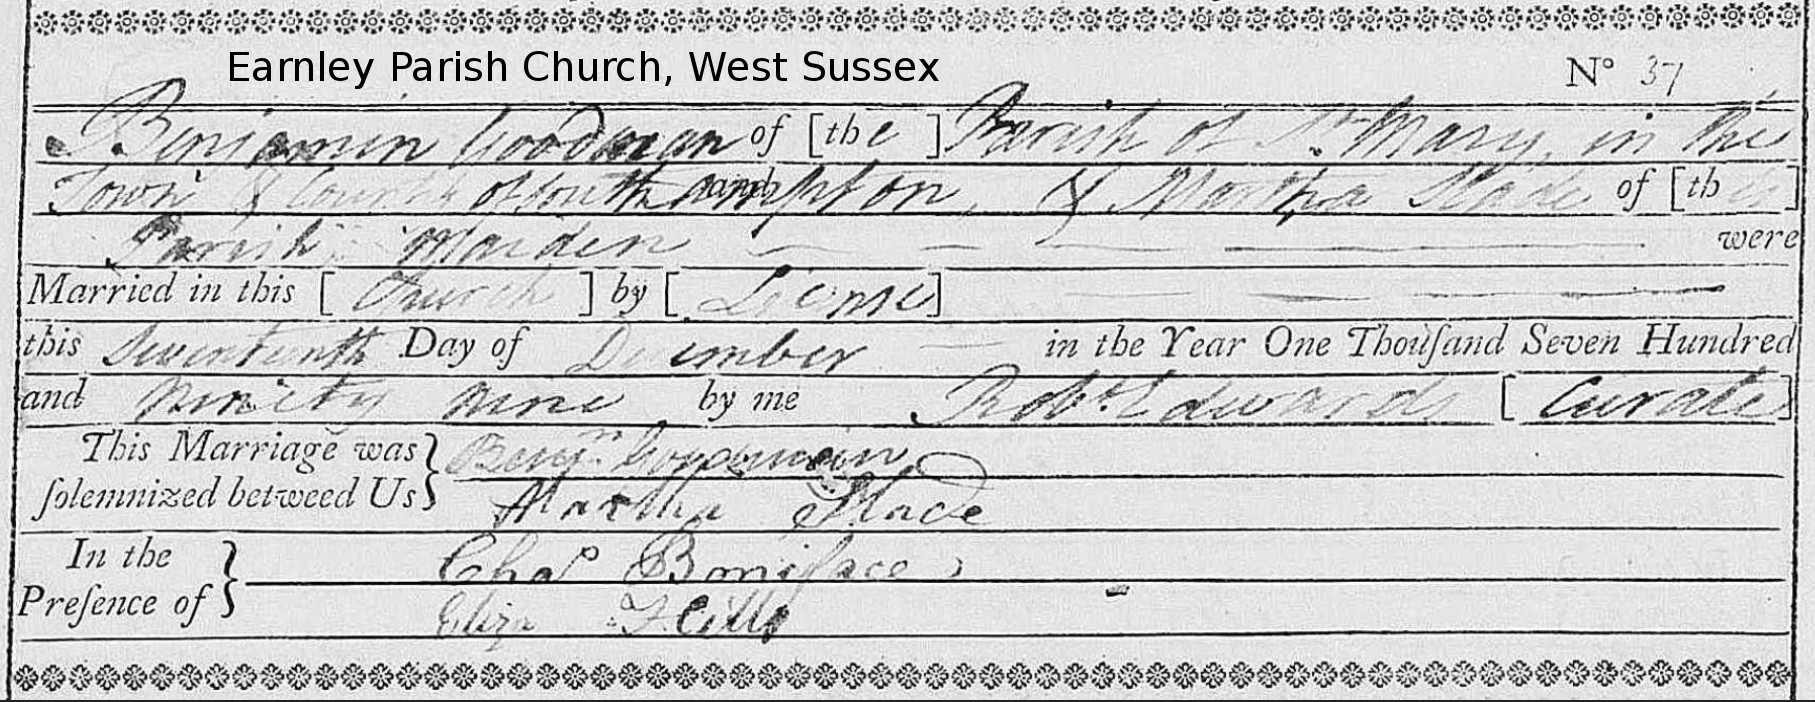 Earnley Parish Church, West Sussex
N° 37
Benjamin Goodman of [the ] Parish of St. Mary, in the
Town & County of Southampton, & Martha Slade of [th is]
Parish Maiden were
Married in this [ Church ] by [ License]
this Seventeenth Day of December in the Year One Thouſand Seven Hundred
and Ninety nine by me Robt. Edwards [ Curate]
This Marriage was
ſolemnized betweed Us
Benjn. Goodman
Martha Slade
In the
Preſence of
Chas Boniface
Eliza